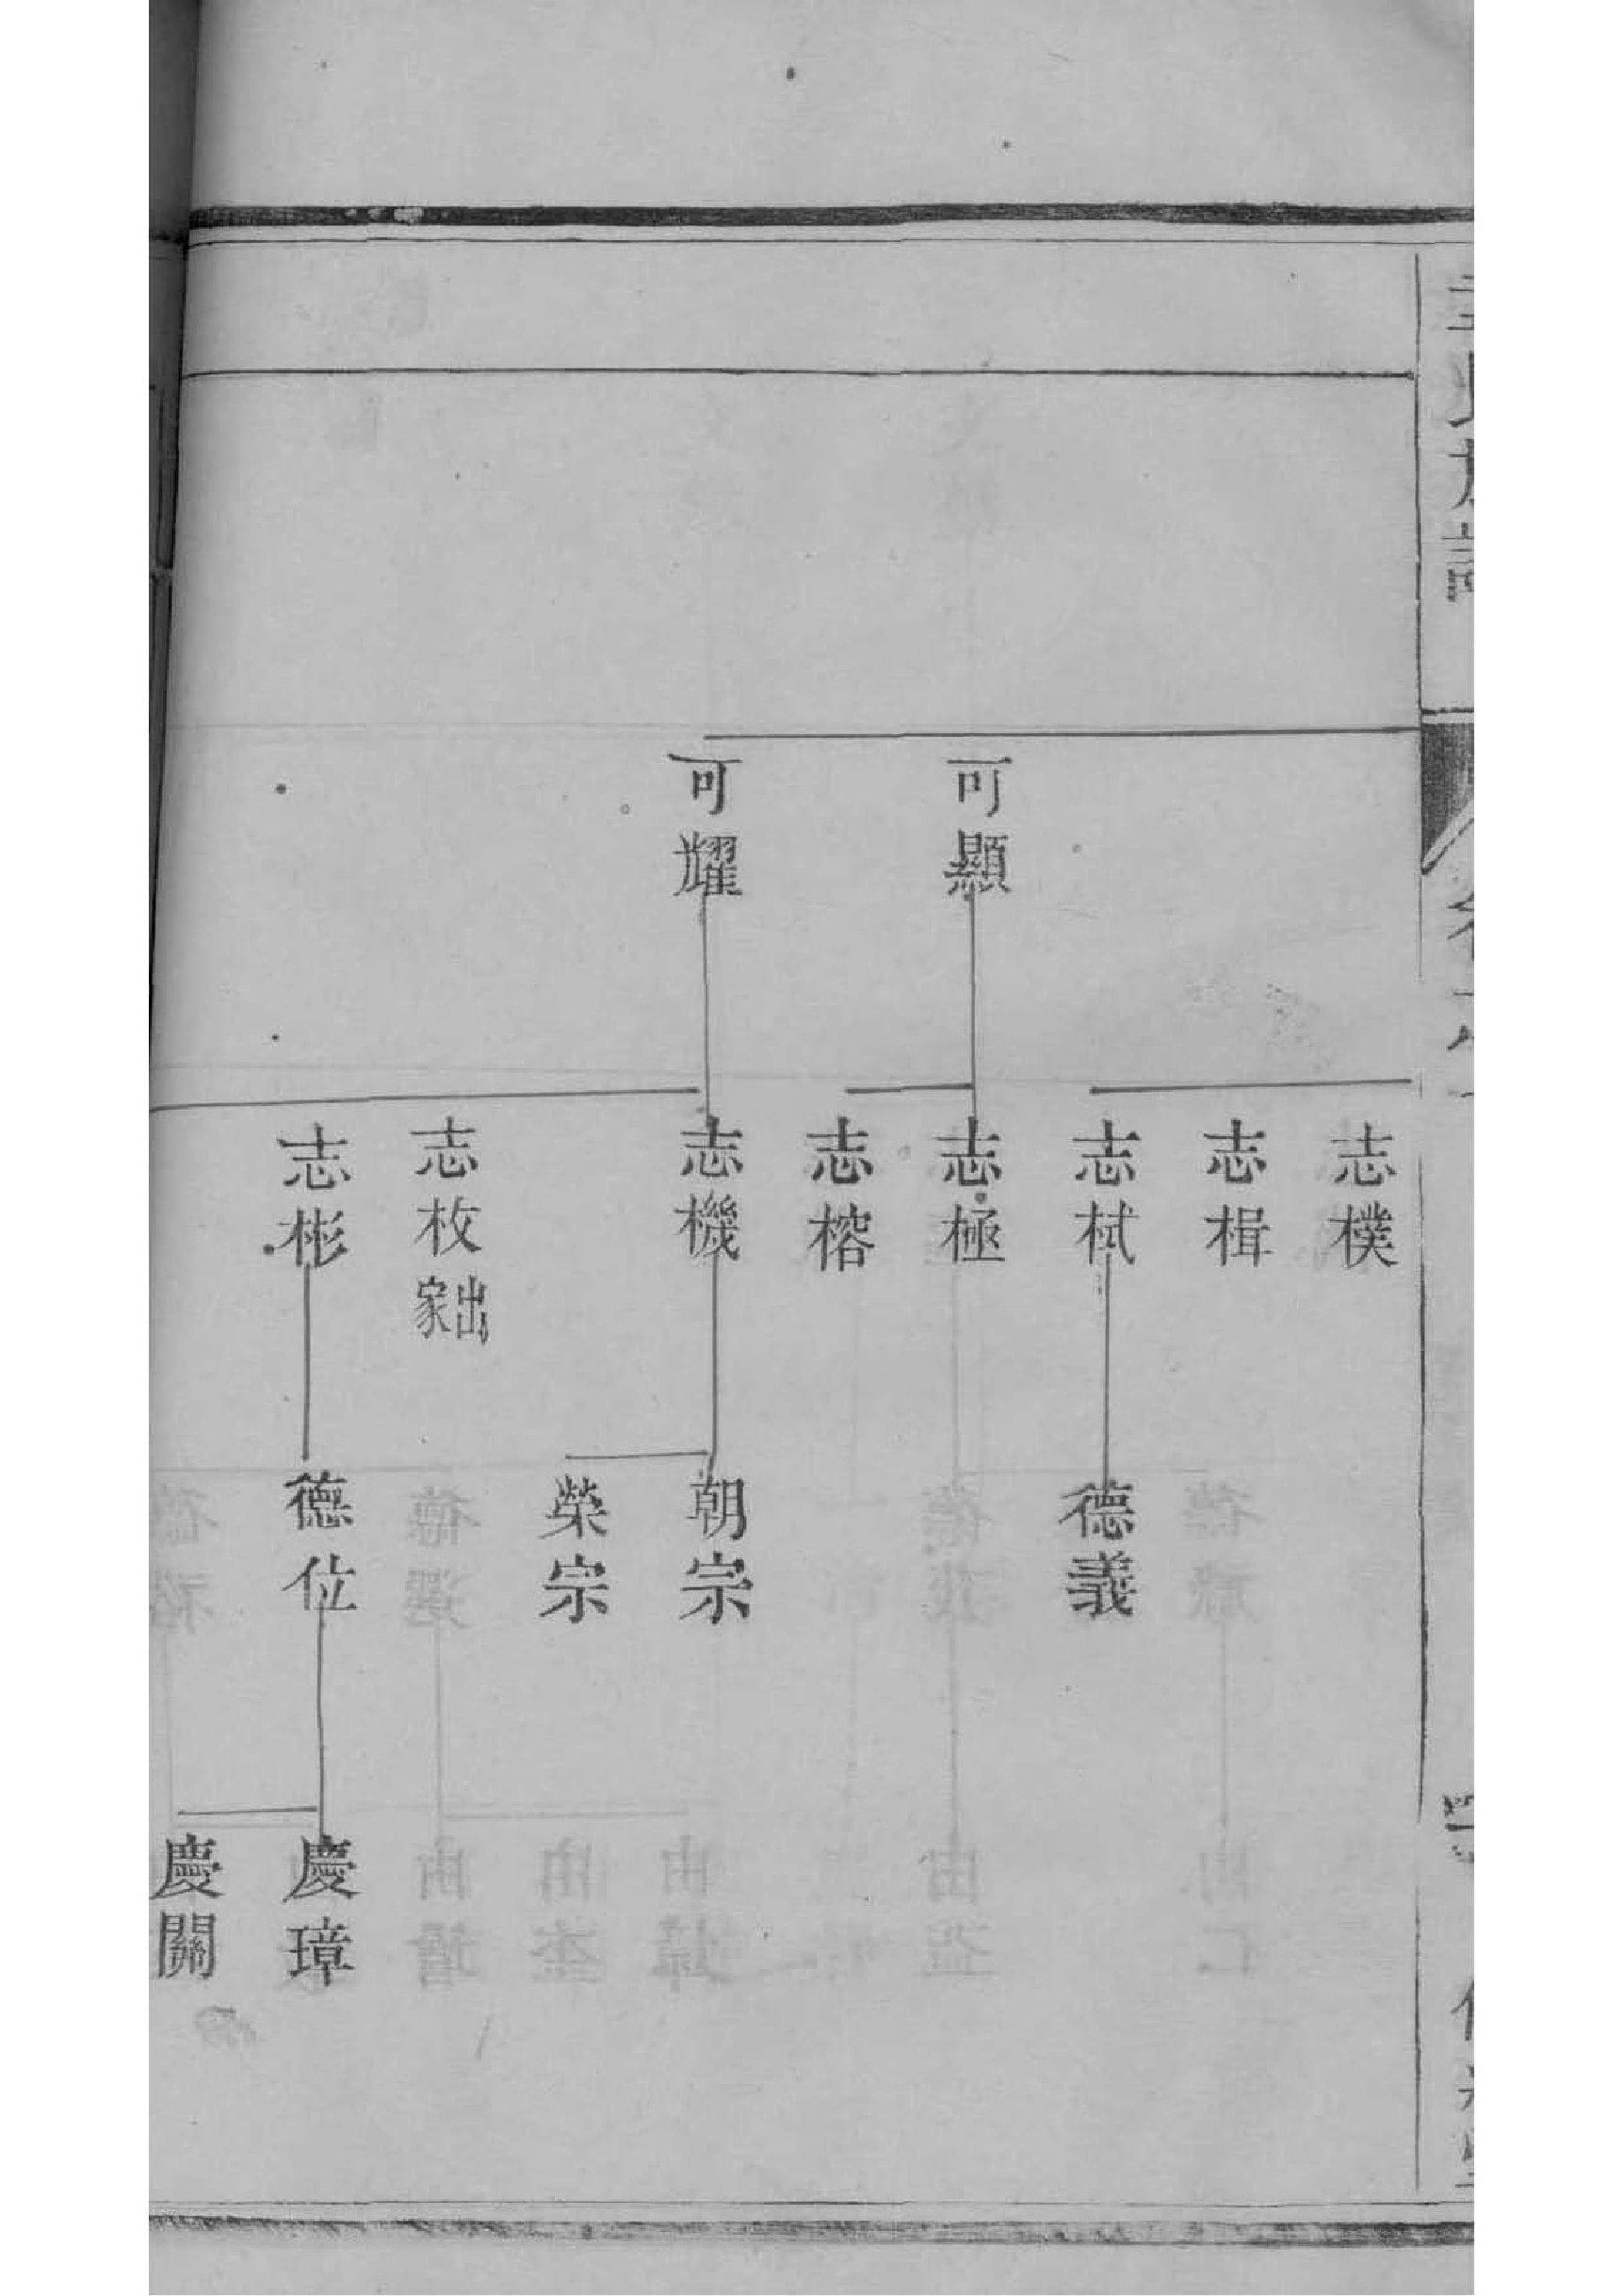 可顯
可耀
志樸
志楫
志栻
志極
志榕
志機
志枚出家
志彬
德義
朝宗
榮宗
德位
慶璋
慶關